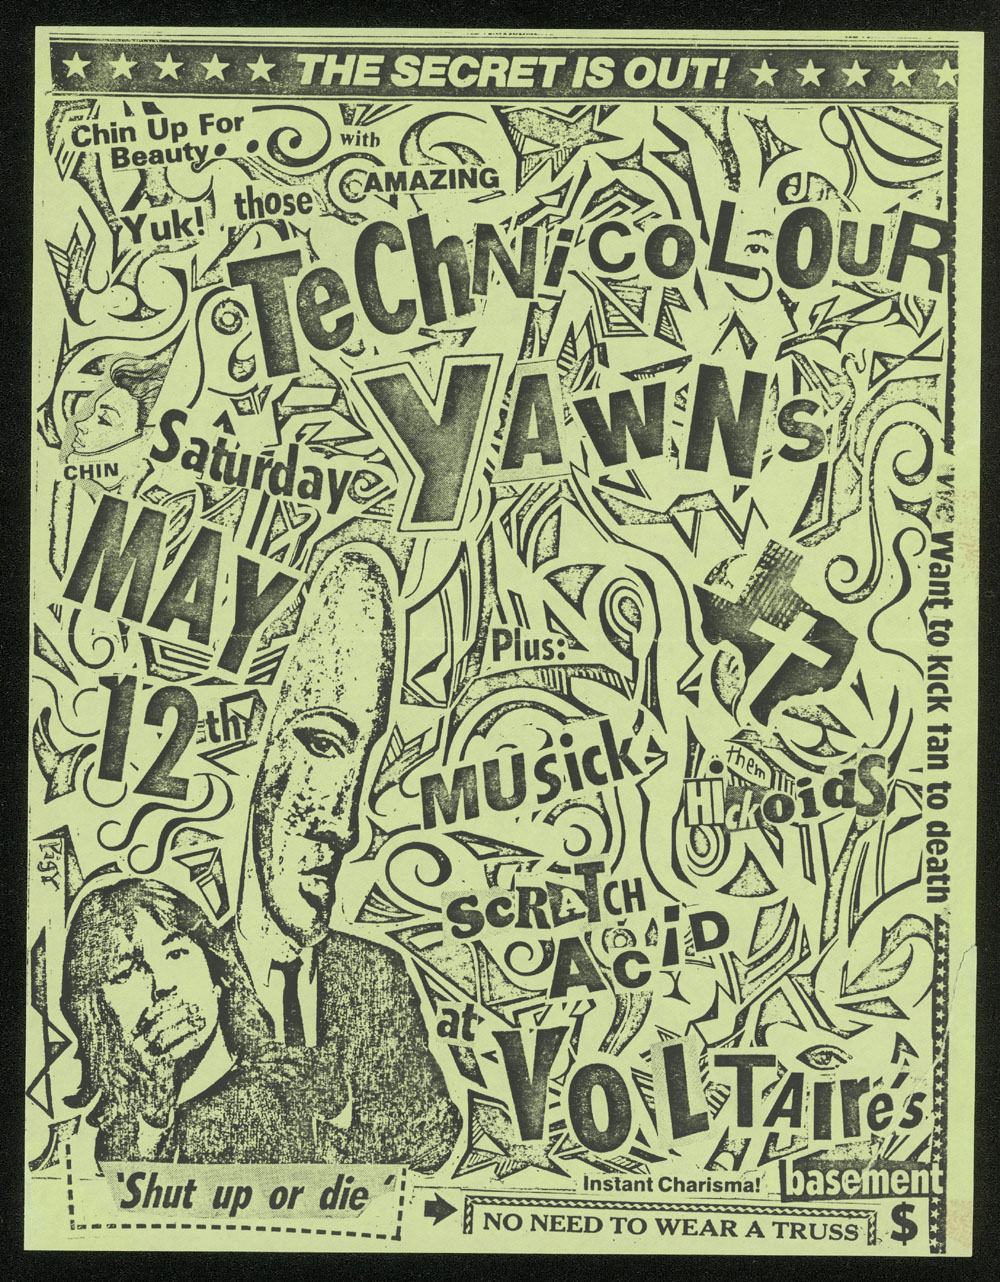 THE SECRET IS OUT!
Chin Up For
Beauty..
with
AMAZING
Yuk!
those
TeChNiCoLOuR
YAWNS
CHIN
Saturday
MAY
12th
Plus:
MUsick
them
HickoidS
ScRATCH
AciD
at
VOLTAire's
basement
Instant Charisma!
'Shut up or die'
NO NEED TO WEAR A TRUSS
$
We want to kick tan to death